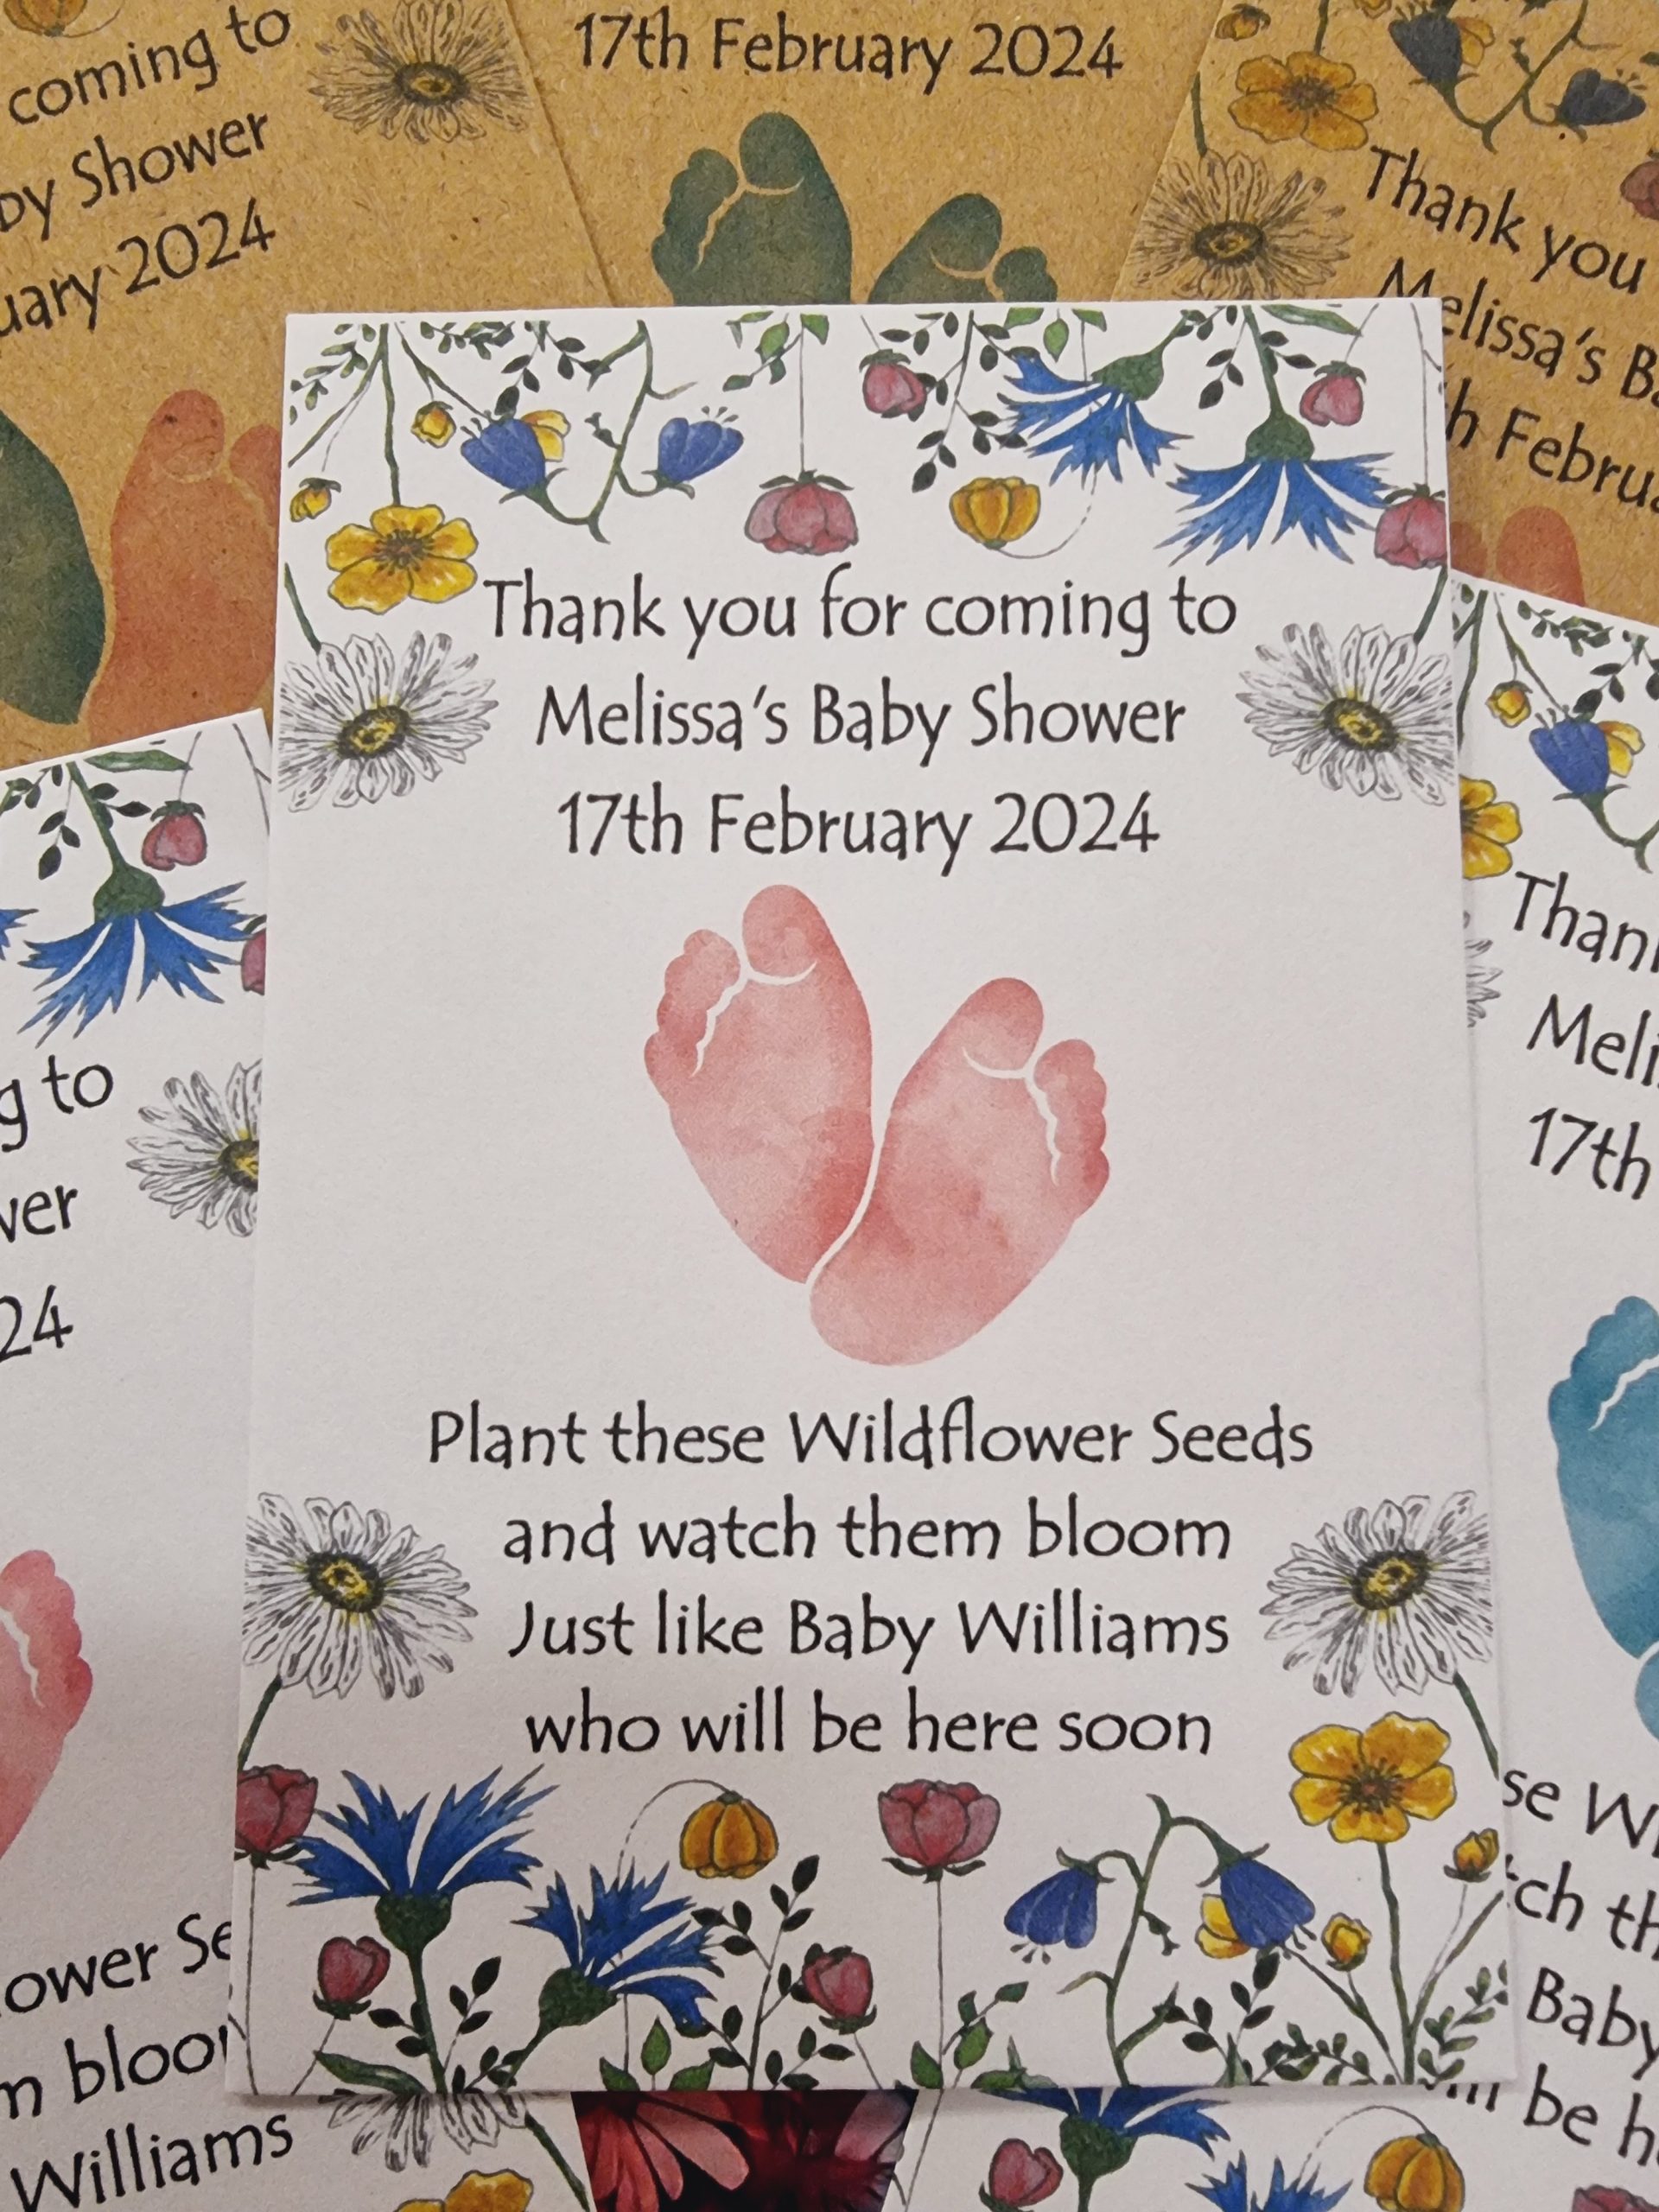 coming to
Shower
2024
17th February 2024
Thank you
Melissa's
Thank you for coming to
Melissa's Baby Shower
17th February 2024
Plant these Wildflower Seeds
and watch them bloom
Just like Baby Williams
who will be here soon
to
24
Williams
17th
Baby
be